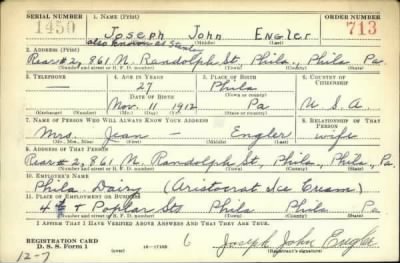 SERIAL NUMBER 1. NAME (Print) ORDER NUMBER
1450 Joseph John Engler 713
also known as
(First) (Middle) (Last)
2. ADDRESS (Print)
Rear #2, 861 N. Randolph St, Phila., Phila, Pa.
(Number and street or R. F. D. number) (Town) (County) (State)
3. TELEPHONE 4. AGE IN YEARS 5. PLACE OF BIRTH 6. COUNTRY OF CITIZENSHIP
— 27 Phila
DATE OF BIRTH (Town or county)
Nov. 11 1912 Pa U. S. A.
(Exchange) (Number) (Mo.) (Day) (Yr.) (State or country)
7. NAME OF PERSON WHO WILL ALWAYS KNOW YOUR ADDRESS 8. RELATIONSHIP OF THAT PERSON
Mrs. Jean — Engler wife
(Mr., Mrs., Miss) (First) (Middle) (Last)
9. ADDRESS OF THAT PERSON
Rear #2, 861 N. Randolph St, Phila., Phila., Pa.
(Number and street or R. F. D. number) (Town) (County) (State)
10. EMPLOYER'S NAME
Phila. Dairy (Aristocrat Ice Cream)
11. PLACE OF EMPLOYMENT OR BUSINESS
4th & Poplar Sts Phila Phila Pa
(Number and street or R. F. D. number) (Town) (County) (State)
I AFFIRM THAT I HAVE VERIFIED ABOVE ANSWERS AND THAT THEY ARE TRUE.
REGISTRATION CARD
D. S. S. Form 1 (over) 16—17105 6 Joseph John Engler
(Registrant's signature)
12-7